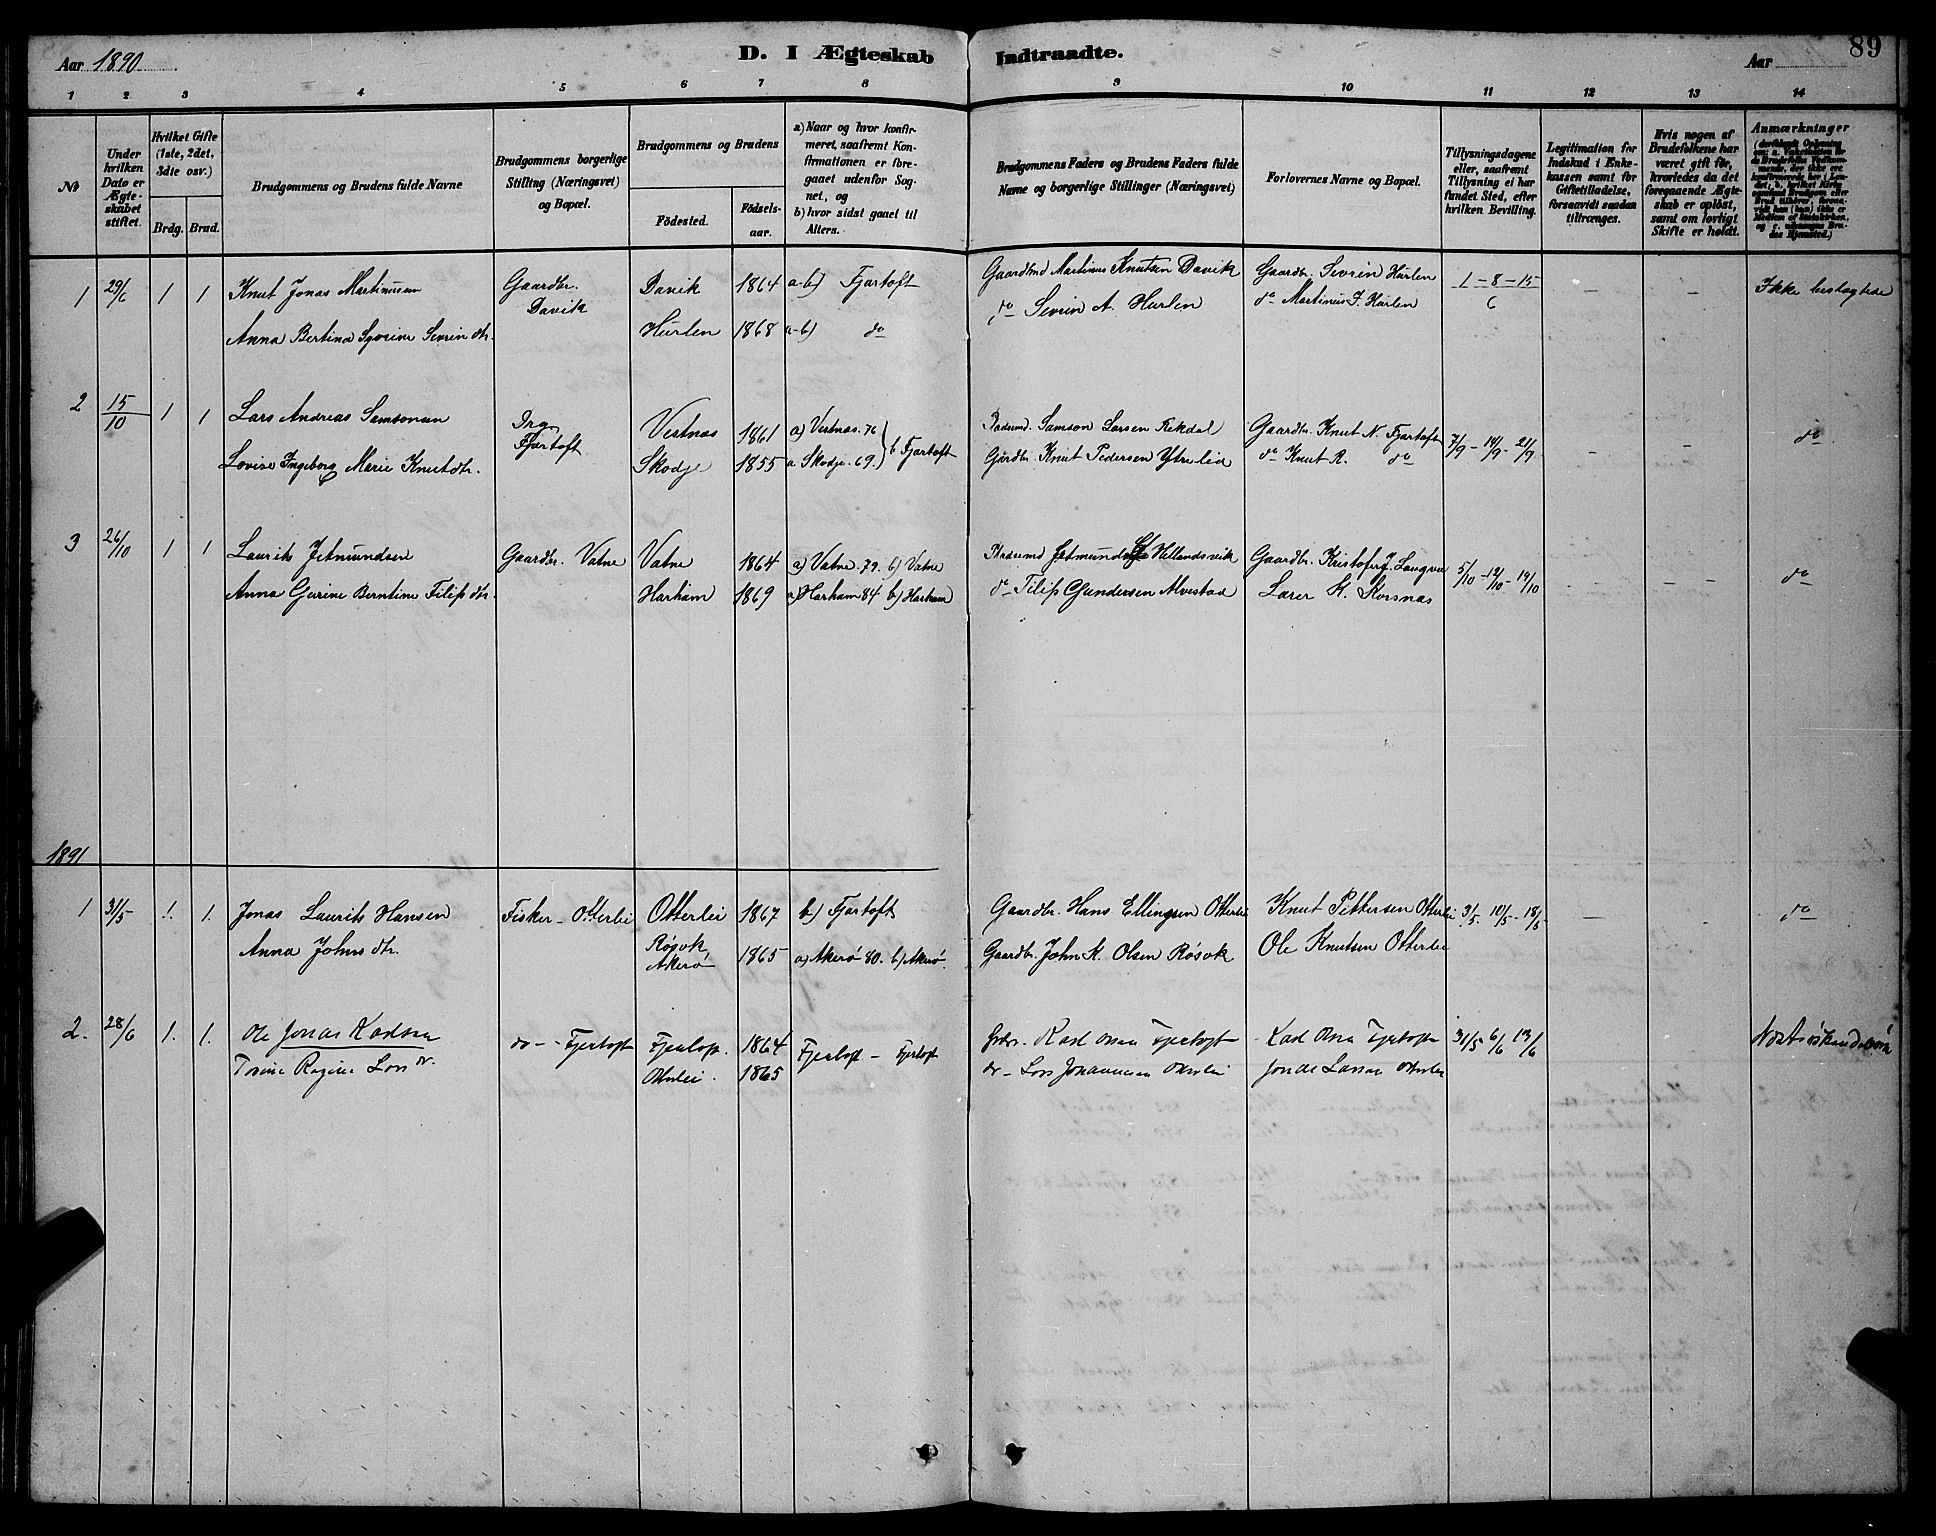 Aar 1890
D. I Ægteskab Indtraadte.
Aar
89
1 2 3 4 5 6 7 8 9 10 11 12 13 14
No
Under hvilken Dato er Ægte-skabet stiftet.
Hvilket Gifte (1ste, 2det, 3die osv.)
Brdg. Brud.
Brudgommens og Brudens fulde Navne
Brudgommens borgerlige Stilling (Næringsvei) og Bopæl.
Brudgommens og Brudens
Födested. Födsels-aar.
a) Naar og hvor konfir-meret, saafremt Kon-firmationen er fore-gaaet udenfor Sog-net, og
b) hvor sidst gaaet til Alters.
Brudgommens Faders og Brudens Faders fulde Navne og borgerlige Stillinger (Næringsvei)
Forlovernes Navne og Bopæl.
Tillysningsdagene eller, saafremt Tillysning ei har fundet Sted, efter hvilken Bevilling.
Legitimation for Indskud i Enke-kassen samt for Giftetilladelse, forsaavidt saadan tiltrænges.
Hvis nogen af Brudefolkene har været gift för, hvorledes da det foregaaende Ægte-skab er oplöst, samt om lovligt Skifte er holdt.
Anmærkninger
1 29/6 1 1 Knut Jonas Martinusen Gaardbr. Davik Davik 1864 a-b) Fjørtoft Gaardmd Martinus Knutsen Davik Gaardbr. Sevrin Hurlen 1-8-15/6 — — Ikke beslægtede
Anna Bertina Syverine Sevrin dtr. Hurlen 1868 a-b) do do Sevrin A. Hurlen do Martinus J. Hurlen
2 15/10 1 1 Lars Andreas Samsonsen Fjørtoft Vestnæs 1861 a) Vestnæs. 76 b Fjørtoft Samson Larsen Rekdal Gaardbr. Knut N. Fjørtoft 7/9 - 14/9 - 21/9 — — do
Lovise Ingeborg Marie Knutdtr. Skodje 1855 a Skodje. 69. Gårdbr. Knut Pedersen Ytrelid do Knut R. do
3 26/10 1 1 Laurits Jetmundsen Gaardbr. Vatne Vatne 1864 a) Vatne. 79. b) Vatne Jetmund Hellandsvik Gaardbr. Kristofer J. 5/10 - 12/10 - 19/10 — — do
Anna Gurine Berntine Filip dtr. Harham 1869 a) Harham 84 b) Harham do Filip Gundersen Alvestad Lærer K. Korsnæs
1891
1 31/5 1. 1. Jonas Laurits Hansen Fisker - Otterlei Otterlei 1867 b) Fjørtoft Gaardbr. Hans Ellingsen Otterlei Knut Pettersen Otterlei 3/5. 10/5 - 18/5 — — do
Anna Johns dtr. Røsok Akerø 1865 a) Akerø 80. b) Akerø. Gaardbr. John K. Olsen Røsok Ole Knutsen Otterlei
2. 28/6 1. 1. Ole Jonas Karlsen do - Fjertoft Fjertoft. 1864 Fjertoft - Fjertoft Karl Olsen Fjertoft Karl Olsen Fjertoft 31/5 6/6 13/6
Regine Lars dr. Otterlei. 1865 do - Lars Johannesen Otterlei Jonas Larsen Otterlei